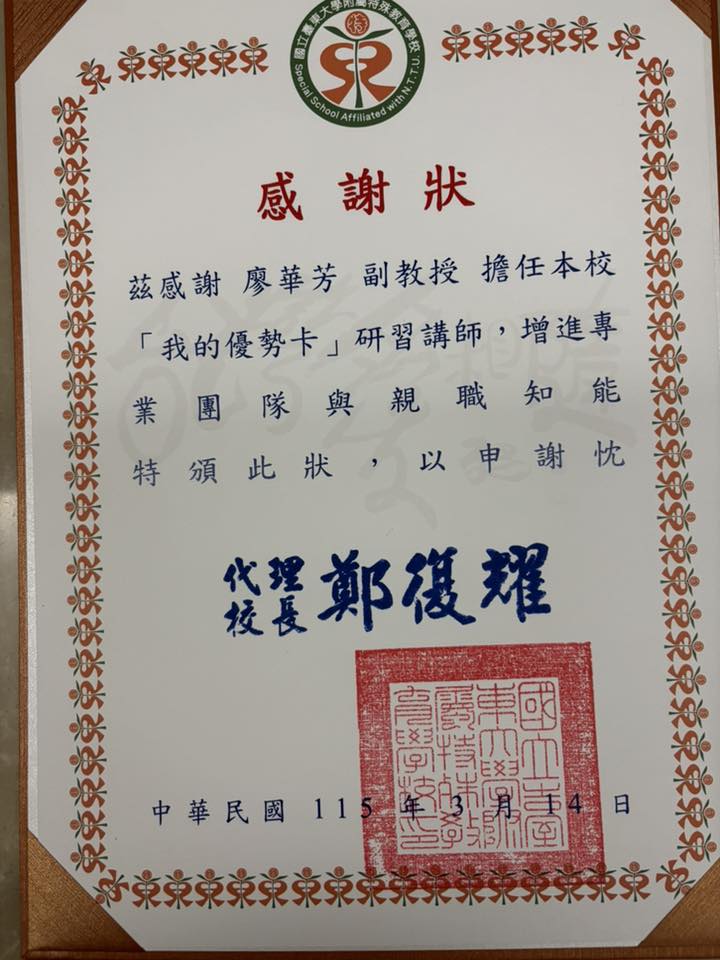 國立臺東大學附屬特殊教育學校
Special School Affiliated with N.T.T.U.
感謝狀
茲感謝 廖華芳 副教授 擔任本校
「我的優勢卡」研習講師，增進專
業團隊與親職知能
特頒此狀，以申謝忱
代理
校長 鄭復耀
國立臺
東大學附
屬特殊教
育學校印
中華民國 115 年 3 月 14 日